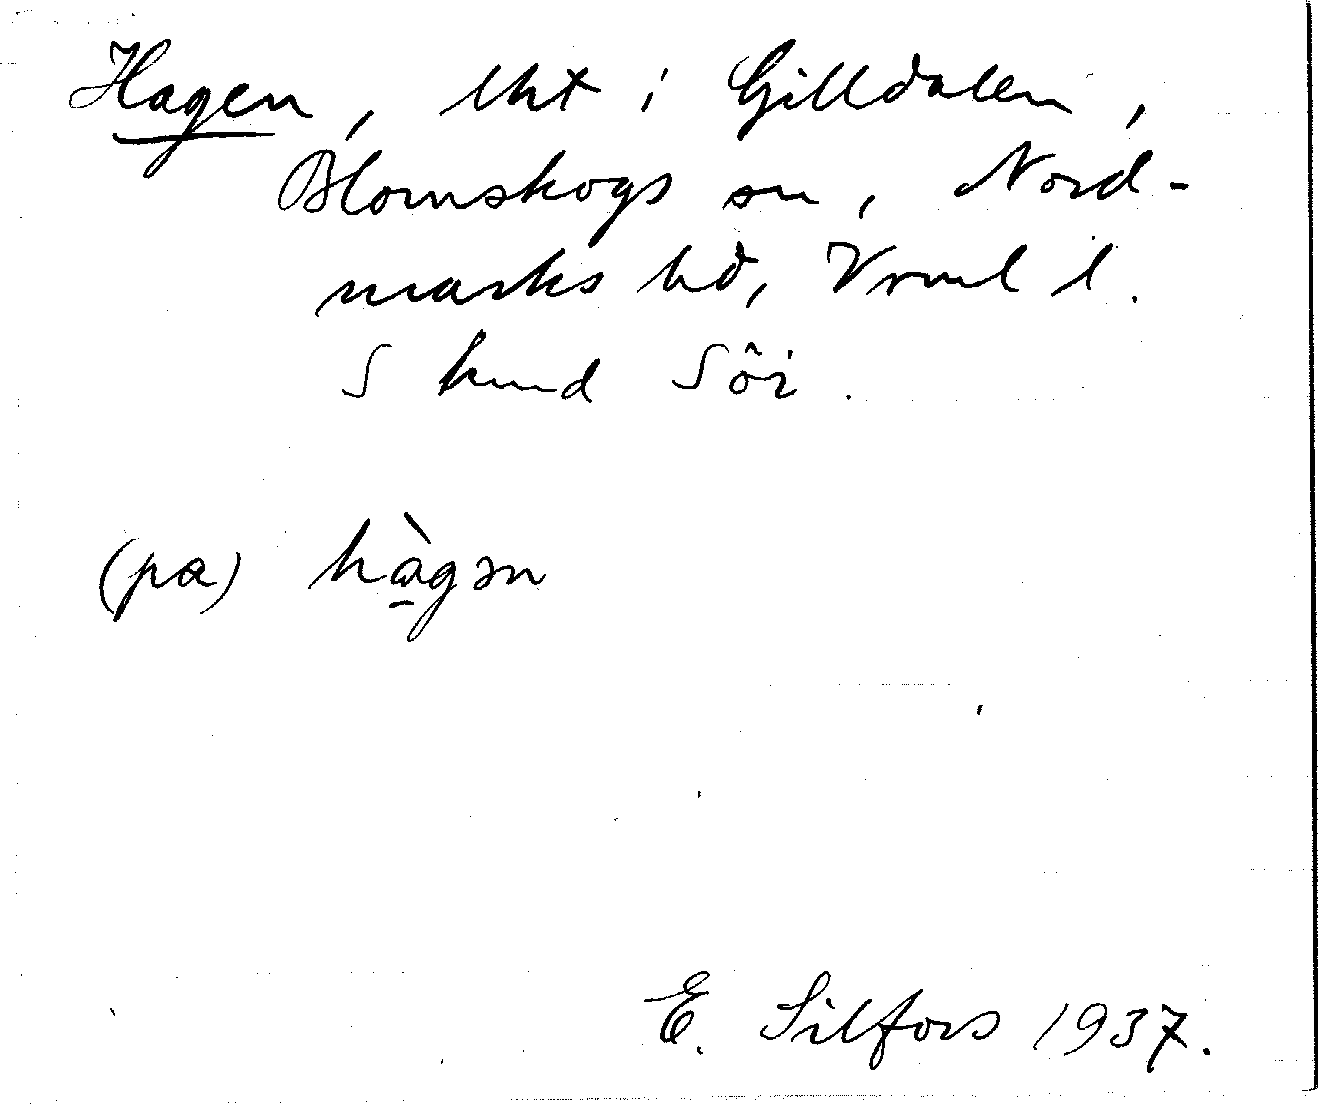 Hagen, lht i Gilldalen,
Blomskogs sn, Nord-
marks hd, Vrml l.
S hmd Söi.
(pa) hàgən
E. Silfors 1937.